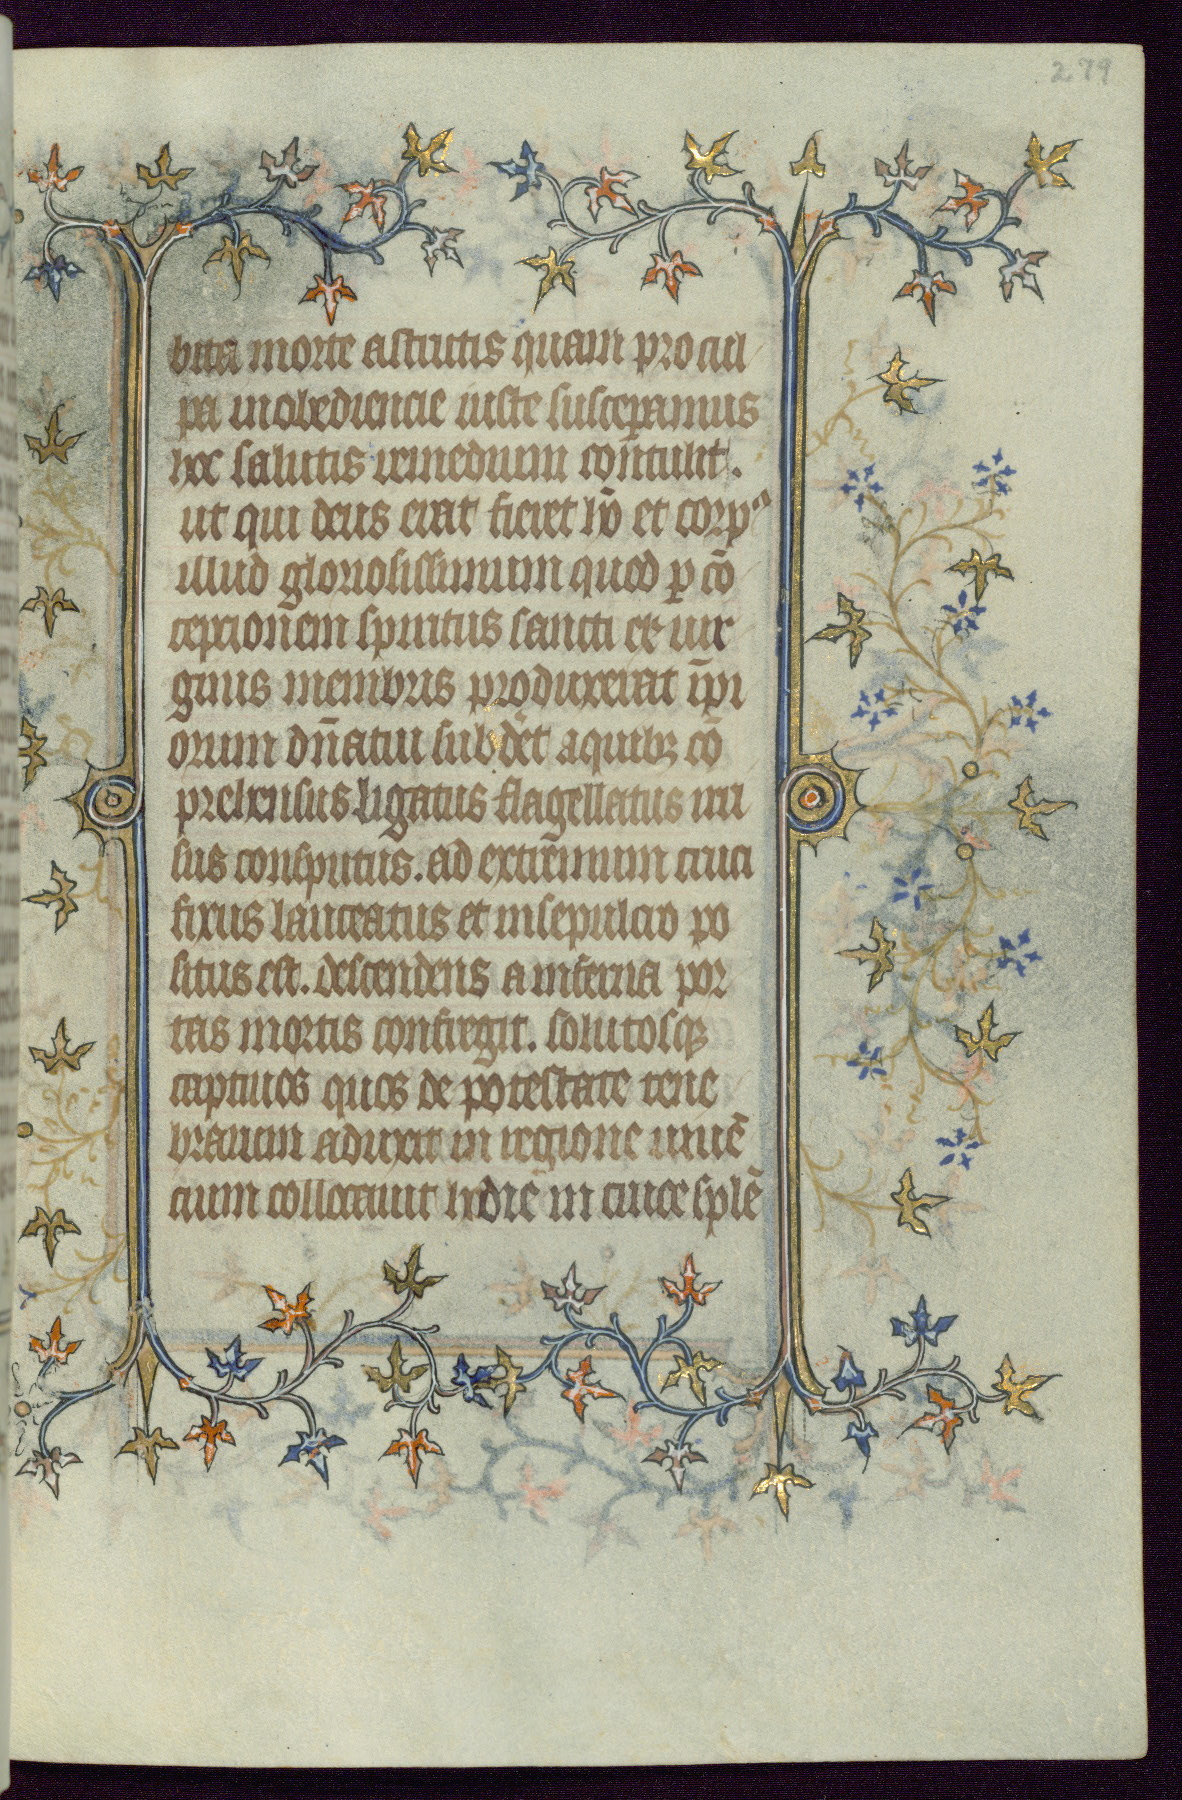 279
bita morte astrictis quam pro cul
pa inobediencie iuste susceperamus
hoc salutis remedium contulit.
ut qui deus erat fieret hō et corpᵒ
illud gloriosissimum quod p̱ cō
ceptionem spiritus sancti et uir
ginis membris produxerat īpi
orum dn̄atui subdēt a quibꝫ cō
prehensus ligatus flagellatus iu
sus consputus. ad extremum cruci
fixus lanceatus et in sepulcro po
situs est. descendens a inferna por
tas mortis confregit. solutosqꝫ
captiuos quos de potestate tene
brarum aduxit in regione uiuē
cium collocauit hodie in cruce splē